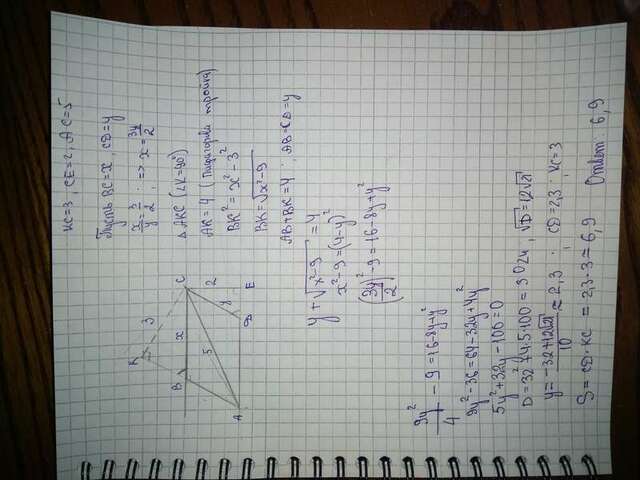 KC=3 ; CE=2, AC=5
Пусть BC=x, CD=y
x/y = 3/2 ; => x = 3y/2
△ AKC (∠K=90°)
AK = 4 (Пифагорова тройка)
BK² = x² - 3²
BK = √x²-9
AB+BK=4 ; AB=CD=y
y + √x²-9 = 4
x²-9 = (4-y)²
(3y/2)² - 9 = 16-8y+y²
9y²/4 - 9 = 16-8y+y²
9y²-36 = 64-32y+4y²
5y²+32y-100=0
D = 32²+4·5·100 = 3024 ; √D = 12√21
y = -32+12√21/10 ≈ 2,3 ; CD=2,3 ; KC=3
S = CD·KC = 2,3·3 = 6,9 Ответ: 6,9
K
3
B
x
C
2
5
y
A
D
E